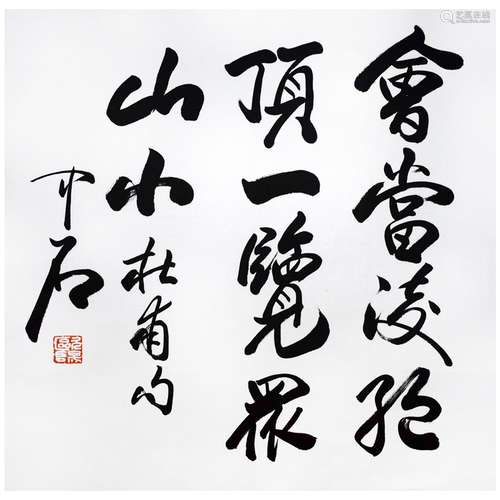 會當淩絕
頂一覽眾
山小 杜甫句
中石